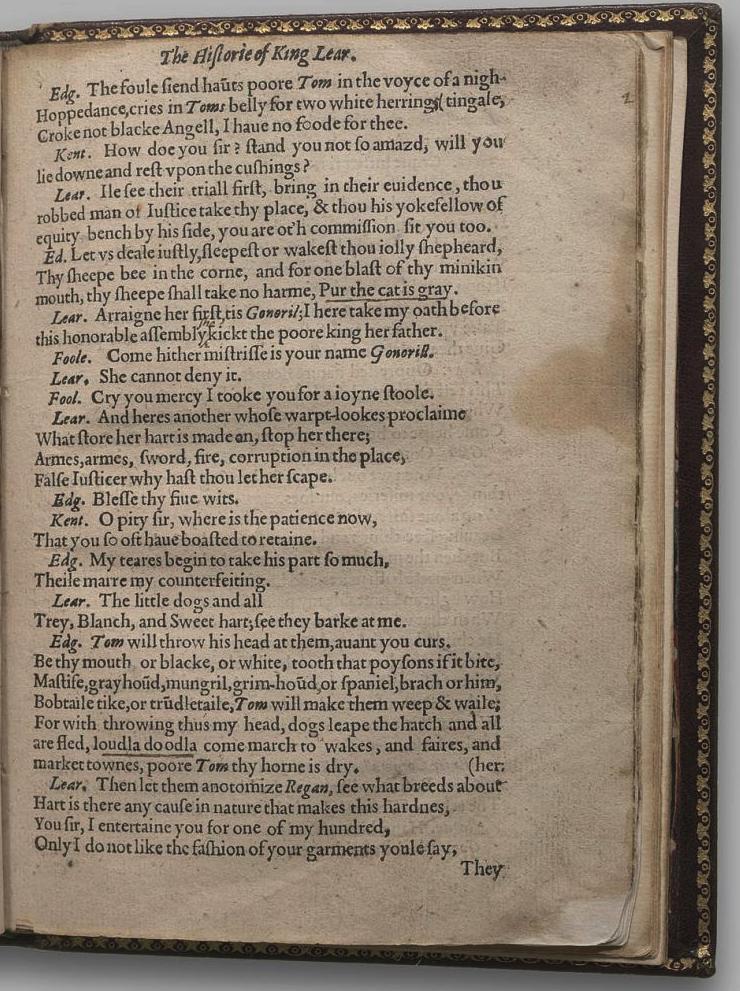 The Hiſtorie of King Lear.
Edg. The foule fiend haūts poore Tom in the voyce of a nigh-
Hoppedance,cries in Toms belly for two white herring,(tingale,
Croke not blacke Angell, I haue no foode for thee.
Kent. How doe you ſir? ſtand you not ſo amazd, will you
lie downe and reſt vpon the cuſhings?
Lear. Ile ſee their triall firſt, bring in their euidence, thou
robbed man of Iuſtice take thy place, & thou his yokefellow of
equity bench by his ſide, you are ot'h commiſſion ſit you too.
Ed. Let vs deale iuſtly,ſleepeſt or wakeſt thou iolly ſhepheard,
Thy ſheepe bee in the corne, and for one blaſt of thy minikin
mouth, thy ſheepe ſhall take no harme, Pur the cat is gray.
Lear. Arraigne her firſt,tis Gonoril;I here take my oath before
this honorable aſſembly kickt the poore king her father.
Foole. Come hither miſtriſſe is your name Gonorill.
Lear. She cannot deny it.
Fool. Cry you mercy I tooke you for a ioyne ſtoole.
Lear. And heres another whoſe warpt-lookes proclaime
What ſtore her hart is made an, ſtop her there;
Armes,armes, ſword, fire, corruption in the place,
Falſe Iuſticer why haſt thou let her ſcape.
Edg. Bleſſe thy fiue wits.
Kent. O pity ſir, where is the patience now,
That you ſo oft haue boaſted to retaine.
Edg. My teares begin to take his part ſo much,
Theile marre my counterfeiting.
Lear. The little dogs and all
Trey, Blanch, and Sweet hart;ſee they barke at me.
Edg. Tom will throw his head at them,auant you curs.
Be thy mouth or blacke, or white, tooth that poyſons if it bite,
Maſtife,grayhoūd,mungril,grim-hoūd,or ſpaniel,brach or him,
Bobtaile tike,or trūdletaile,Tom will make them weep & waile;
For with throwing thus my head, dogs leape the hatch and all
are fled, loudla doodla come march to wakes, and faires, and
market townes, poore Tom thy horne is dry. (her:
Lear. Then let them anotomize Regan, ſee what breeds about
Hart is there any cauſe in nature that makes this hardnes,
You ſir, I entertaine you for one of my hundred,
Only I do not like the faſhion of your garments youle ſay,
They